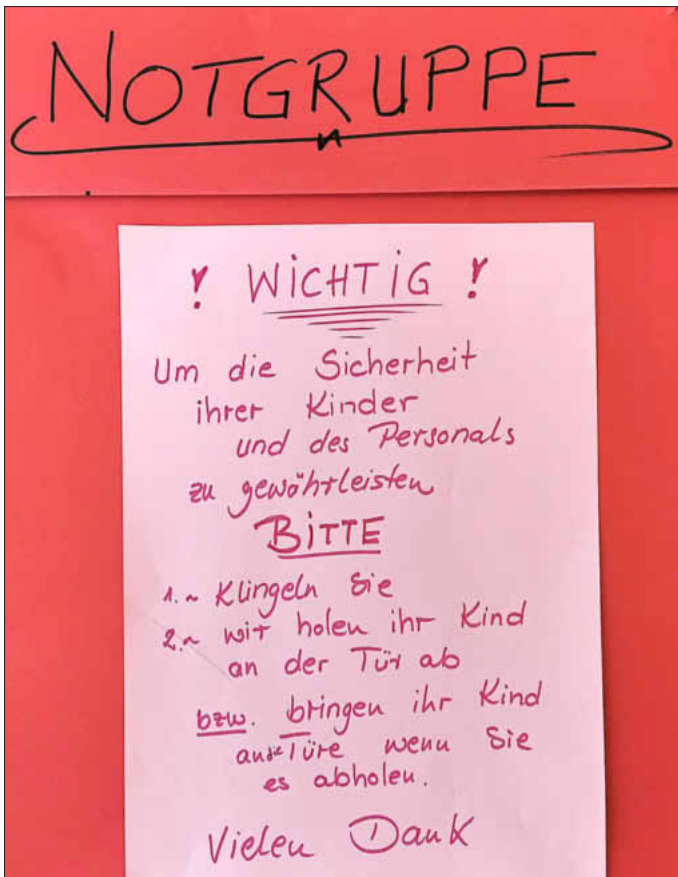 NOTGRUPPE
! WICHTIG !
Um die Sicherheit
ihrer Kinder
und des Personals
zu gewährleisten
BITTE
1.~ Klingeln Sie
2.~ wir holen ihr Kind
an der Tür ab
bzw. bringen ihr Kind
an die Türe wenn Sie
es abholen.
Vielen Dank